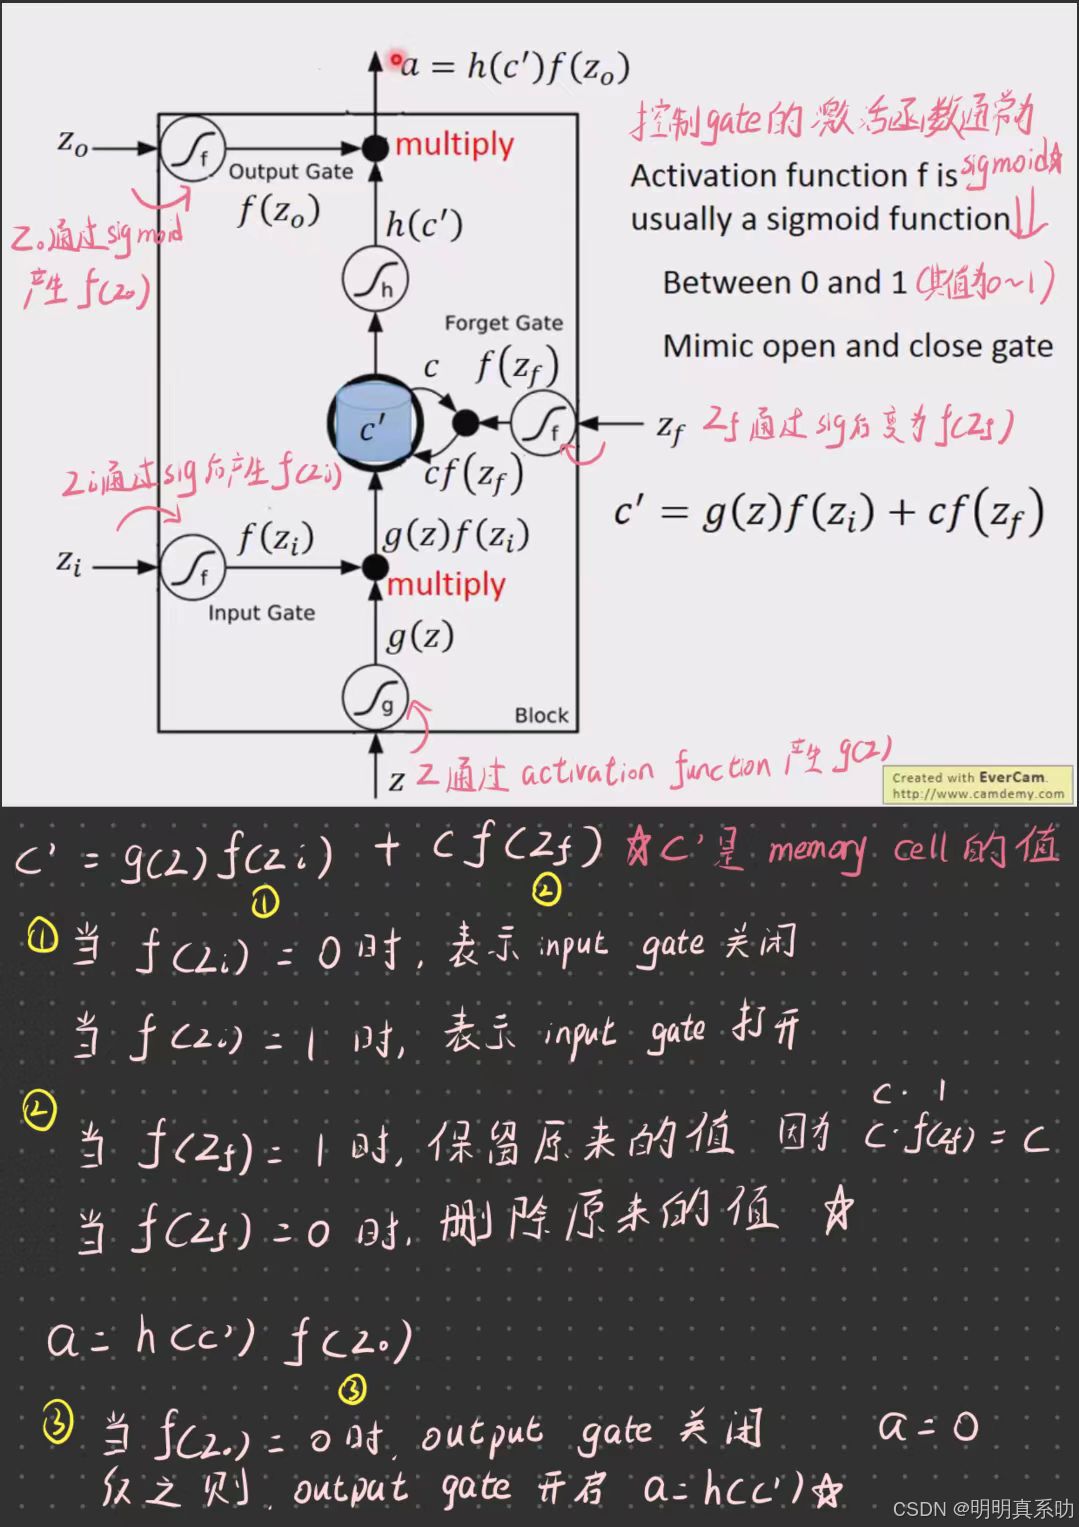 a = h(c')f(z_o)
控制gate的激活函数通常为
sigmoid☆
z_o
f
multiply
Output Gate
f(z_o)
Activation function f is
usually a sigmoid function
Zo通过sigmoid
产生 f(Zo)
h(c')
h
Between 0 and 1 (其值为0~1)
Forget Gate
Mimic open and close gate
c
f(z_f)
c'
f
z_f
Zf 通过sig后变为f(Zf)
cf(z_f)
Zi通过sig后产生f(Zi)
c' = g(z)f(z_i) + cf(z_f)
f(z_i)
g(z)f(z_i)
z_i
f
multiply
Input Gate
g(z)
g
Block
z
Z通过 activation function 产生 g(Z)
Created with EverCam.
http://www.camdemy.com
c' = g(Z)f(Zi) + cf(Zf) ☆c'是 memory cell 的值
① ②
① 当 f(Zi) = 0 时, 表示 input gate 关闭
当 f(Zi) = 1 时, 表示 input gate 打开
c · 1
② 当 f(Zf) = 1 时, 保留原来的值 因为 c·f(Zf) = c
当 f(Zf) = 0 时, 删除原来的值 ☆
a = h(c') f(Zo)
③
③ 当 f(Zo) = 0 时, output gate 关闭 a = 0
反之则, output gate 开启 a = h(c')☆
CSDN @明明真系叻